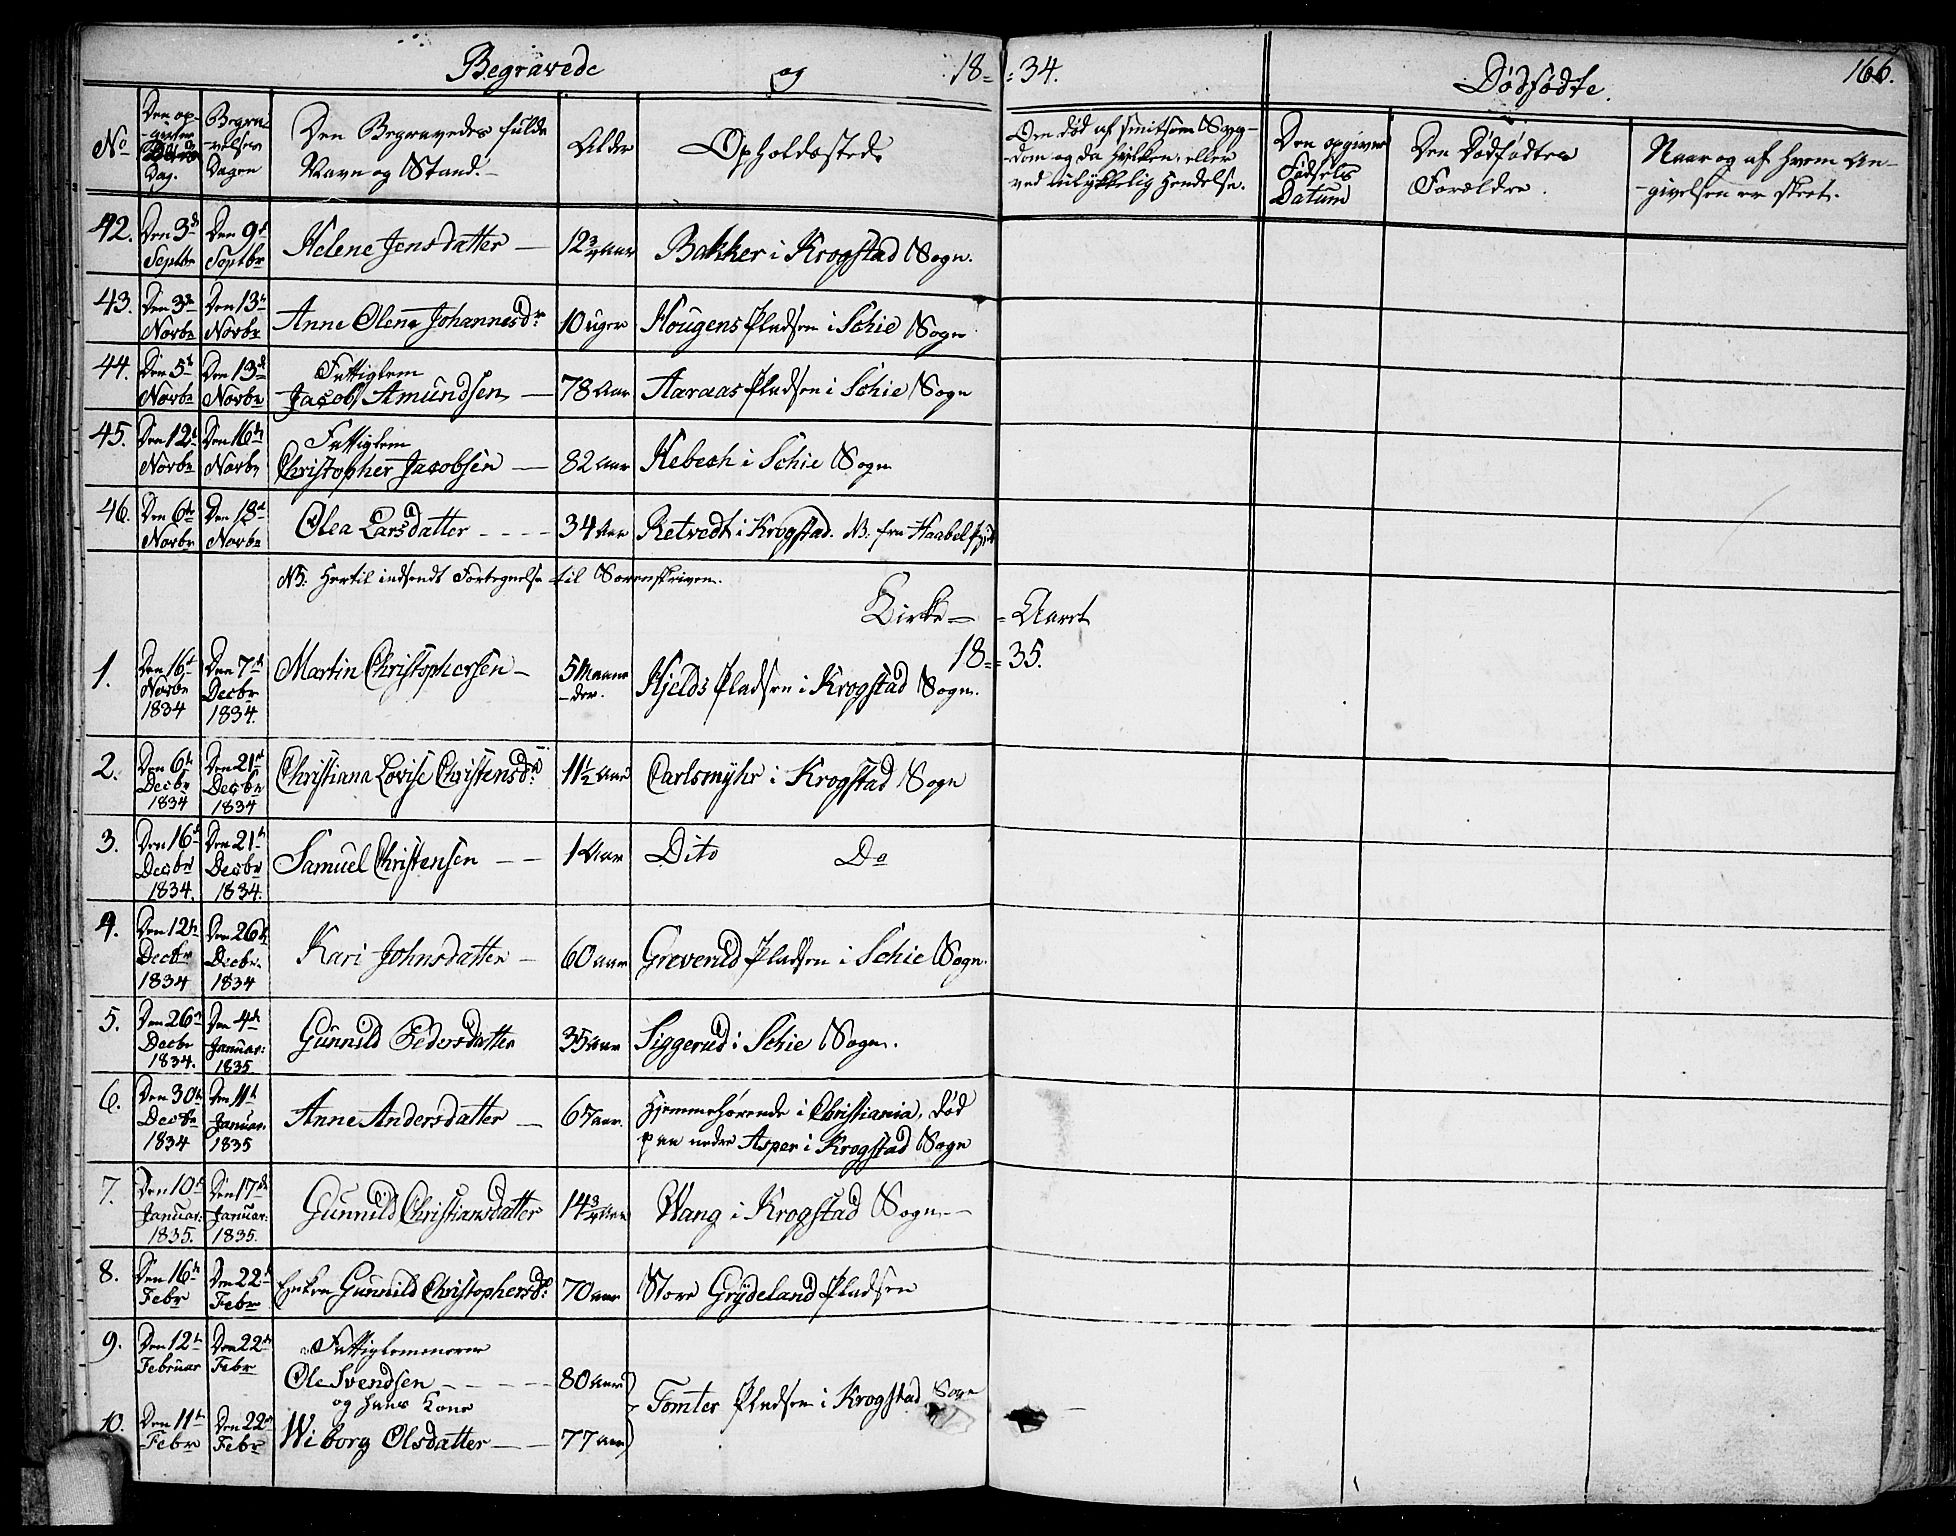 Begravede og 18= =34. Dødfødte. 166.
No Den op-givne Døds Dag. Begra-velses Dagen Den Begravedes fulde Navn og Stand. Alder Opholdssted. Om død af smitsom Syg-dom og da hvilken, eller ved ulykkelig Hendelse. Den opgivne Fødsels Datum Den Dødfødtes Forældre. Naar og af hvem An-givelsen er skeet.
42. Den 3de Septbr Den 9de Septbr Helene Jensdatter 12 3/4 Aar Bakker i Krogstad Sogn.
43. Den 3de Novbr Den 13de Novbr Anne Olene Johannesdr. 10 uger Hougens Pladsen i Schie Sogn
44. Den 5te Novbr Den 13de Novbr Fattiglem Jacob Amundsen 78 Aar Aaraas Pladsen i Schie Sogn
45. Den 12te Novbr Den 16de Novbr Fattiglem Christopher Jacobsen 82 Aar Kebech i Schie Sogn
46. Den 6te Novbr Den 18de Novbr Olea Larsdatter 34 Aar Retvedt i Krogstad. NB. fra Haabel
NB: Hertil indsendt Fortegnelse til Sorenskriven.
Kirke= =Aaret
18= =35.
1. Den 16de Novbr 1834 Den 7de Decbr 1834. Martin Christophersen 5 Maane-der. Hjelds Pladsen i Krogstad Sogn.
2. Den 6te Decbr 1834 Den 21de Decbr 1834 Christiana Lovise Christensdr. 11 1/2 Aar Carlsmyhr i Krogstad Sogn
3. Den 16de Decbr 1834. Den 21de Decbr 1834. Samuel Christensen 1 Aar Dito Do
4. Den 12te Decbr 1834 Den 26de Decbr. 1834 Kari Johnsdatter 60 Aar Greverud Pladsen i Schie Sogn.
5. Den 26de Decbr 1834. Den 4de Januar: 1835 Gunnild Pedersdatter 35 Aar Siggerud i Schie Sogn.
6. Den 30te Decbr 1834 Den 11te Januar. 1835 Anne Andersdatter 67 Aar. Hjemmehørende i Christiania, død paa nedre Asper i Krogstad Sogn
7. Den 10de Januar: 1835. Den 17de Januar: 1835. Gunnild Christiansdatter 14 3/4 Aar Wang i Krogstad Sogn
8. Den 16de Febr Den 22de Febr Enken Gunnild Christophersdr. 70 Aar Store Grydeland Pladsen
9. Den 12te Februar Den 22de Febr Fattiglemmerne Ole Svendsen 80 Aar
og hans Kone Tomter Pladsen i Krogstad Sogn
10. Den 11te Febr Den 22de Febr Wiborg Olsdatter 77 Aar